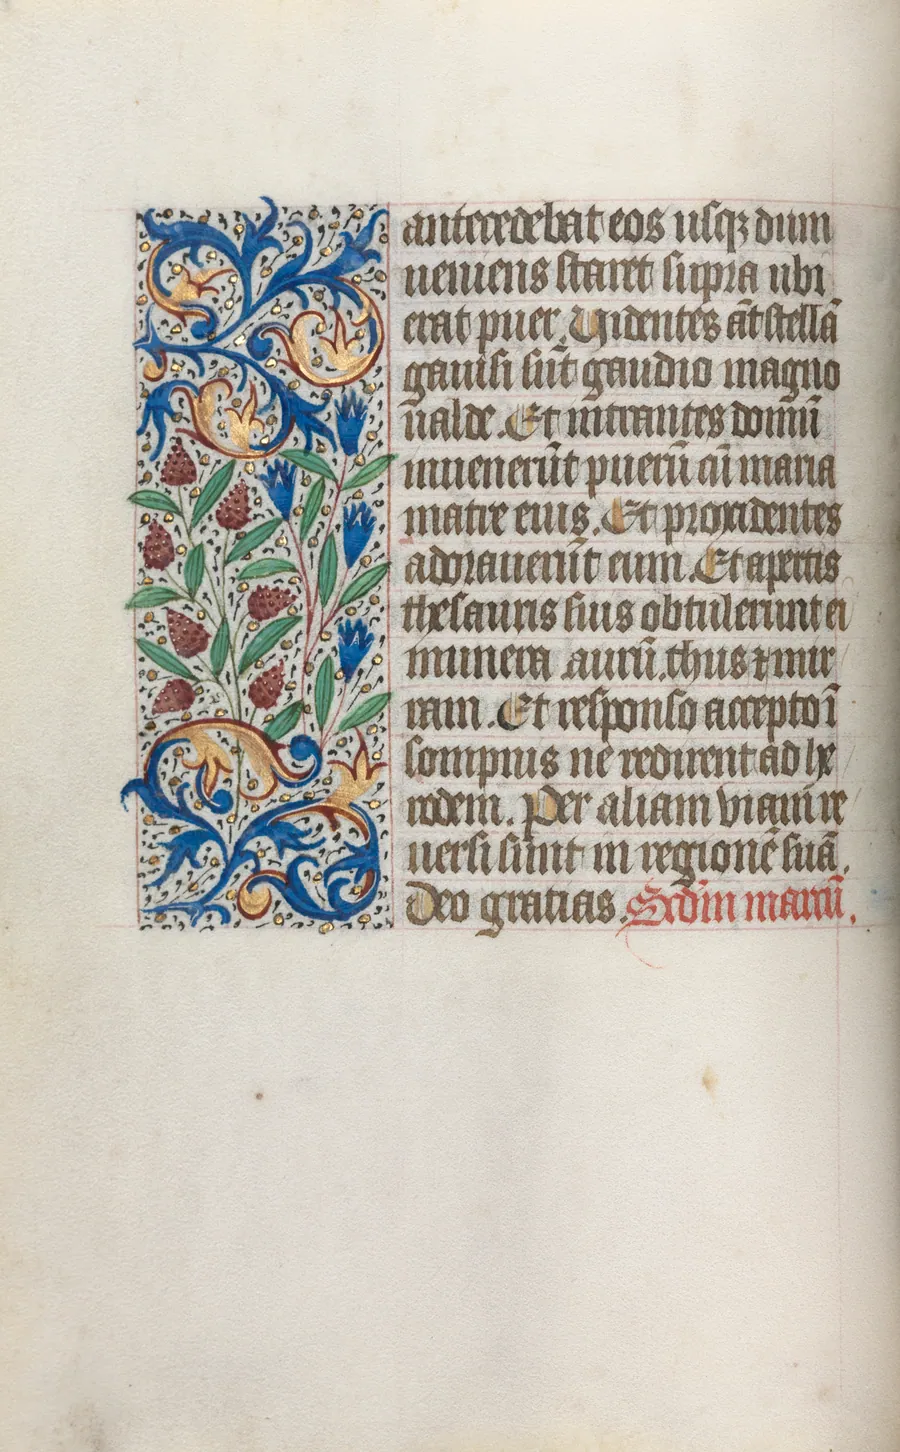 antecedebat eos usqꝫ dum
ueniens staret supra ubi
erat puer. Uidentes āt stellā
gauisi sūt gaudio magno
ualde. Et intrantes domū
inuenerūt puerū cū maria
matre eius. Et procidentes
adorauerūt eum. Et apertis
thesauris suis obtulerunt ei
munera aurū, thus ⁊ mir
ram. Et responso accepto ī
sompnis ne redirent ad he
rodem. Per aliam viam re
uersi sunt in regionē suā.
Deo gratias. Scdm̄ marcū.